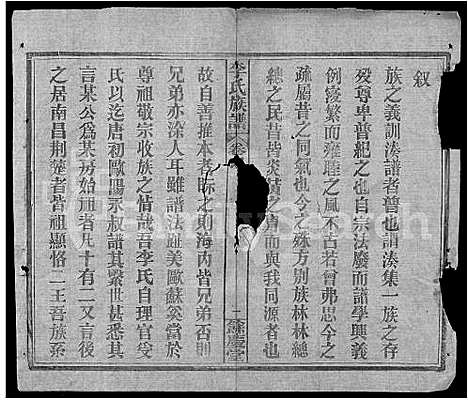 叙
族之義訓湊譜者普也謂湊集一族之存
殁尊卑普紀之也自宗法廢而譜學興義
例寖繁而雍睦之風不古若曾弗思今之
疏屬昔之同氣也今之殊方別族林林總
總之民昔皆炎黃之冑而與我同源者也
李氏族譜 卷
一 餘慶堂
故自善推本者际之則海内皆兄弟否則
兄弟亦涂人耳雖譜法祉美歐蘇奚當於
尊祖敬宗收族之情哉吾李氏自理官受
氏以迄唐初歐陽永叔譜其繫世甚悉其
言某公爲某房始祖者凡十有二又言後
之居南昌荆楚者皆祖顯恪二王吾族系
FamilySearch